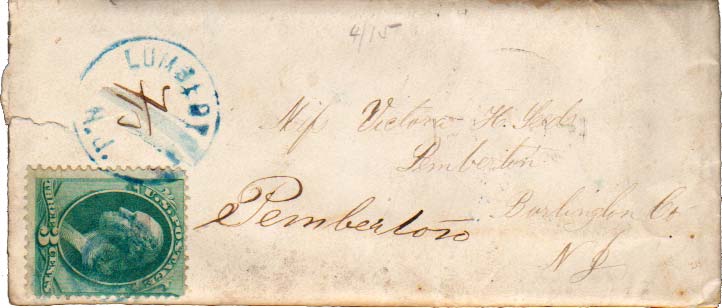 4/15
LUMBERT
N.J.
Miss Victoria H.
Pemberton
Burlington Co
N J
Pemberton
U.S. POSTAGE
THREE 3 CENTS